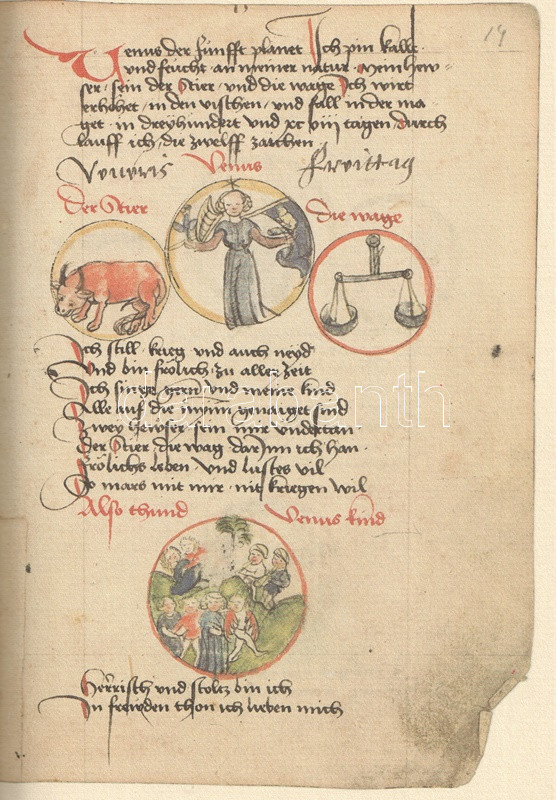 14
Venus der funfft planet Ich pin kallt
und feucht an meiner natur mein hew
ser sein der Stier und die wage Ich wirt
erhohet in den vischen und fall in der ma
get in dreyhundert und xc viii tagen durch
lauff ich die zwelff zaichen
Veneris Venus freittag
der Stier die wage
Ich still krieg und auch neyd
Und bin frölich zu aller zeit
Ich singe gern und meine kind
Alle auf die mynn genaiget sind
Zwey hewser sein mir undertan
Der Stier die wag darjnn ich han
frölichs leben und lustes vil
So mars mit mir nit kriegen wil
Also thund Venus kind
Herrisch und stoltz bin ich
In frewden thon ich lieben mich
darabanth